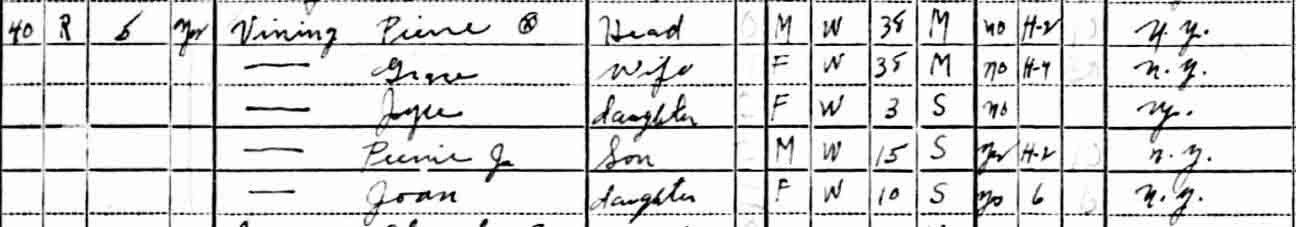 40 R 5 Yes Vining Pierre ⊗ Head M W 38 M no H-2 N.Y.
— Grace Wife F W 35 M no H-4 N.Y.
— Joyce daughter F W 3 S no N.Y.
— Pierre Jr Son M W 15 S Yes H-2 N.Y.
— Joan daughter F W 10 S yes 6 N.Y.